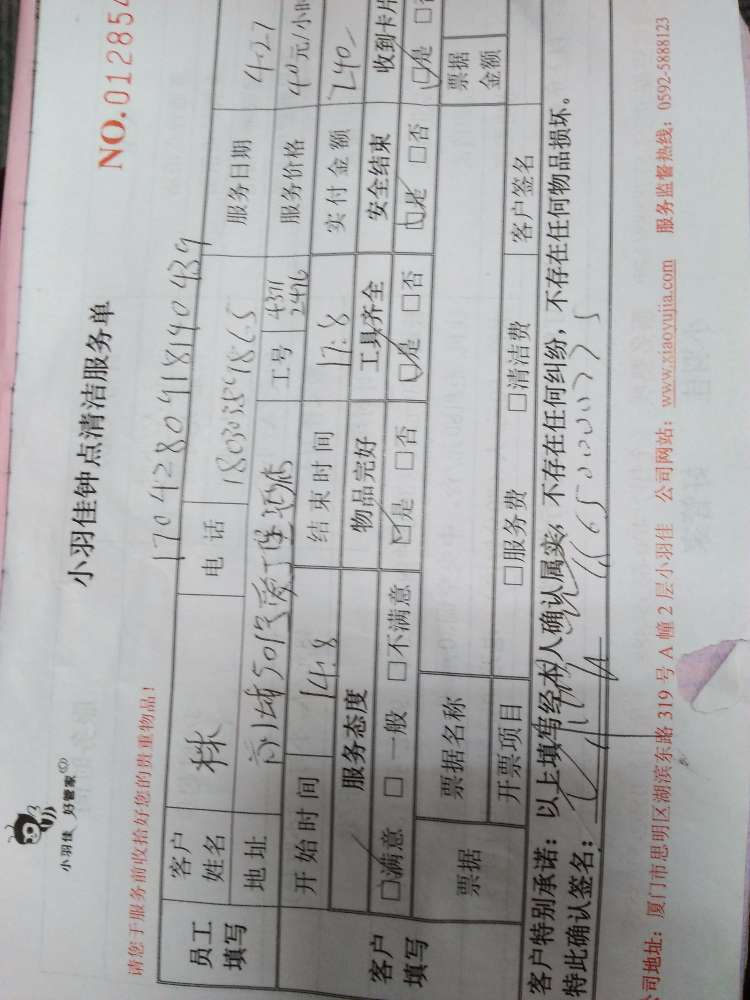 小羽佳 好管家
小羽佳钟点清洁服务单
NO.012854
请您于服务前收拾好您的贵重物品!
17042809181190439
员工填写 客户姓名 林 电话 服务日期 4.27
地址 工号 4371 2476 服务价格 40元/小时
开始时间 14:8 结束时间 17:8 实付金额 240
客户填写 服务态度 物品完好 工具齐全 安全结束 收到卡片
☑满意 □一般 □不满意 ☑是 □否 ☑是 □否 ☑是 □否 ☑是
票据 票据名称 票据金额
开票项目 □服务费 □清洁费 客户签名
客户特别承诺:以上填写经本人确认属实,不存在任何纠纷,不存在任何物品损坏。
特此确认签名:
司地址:厦门市思明区湖滨东路 319 号 A 幢 2 层小羽佳 公司网站:www.xiaoyujia.com 服务监督热线:0592-5888123